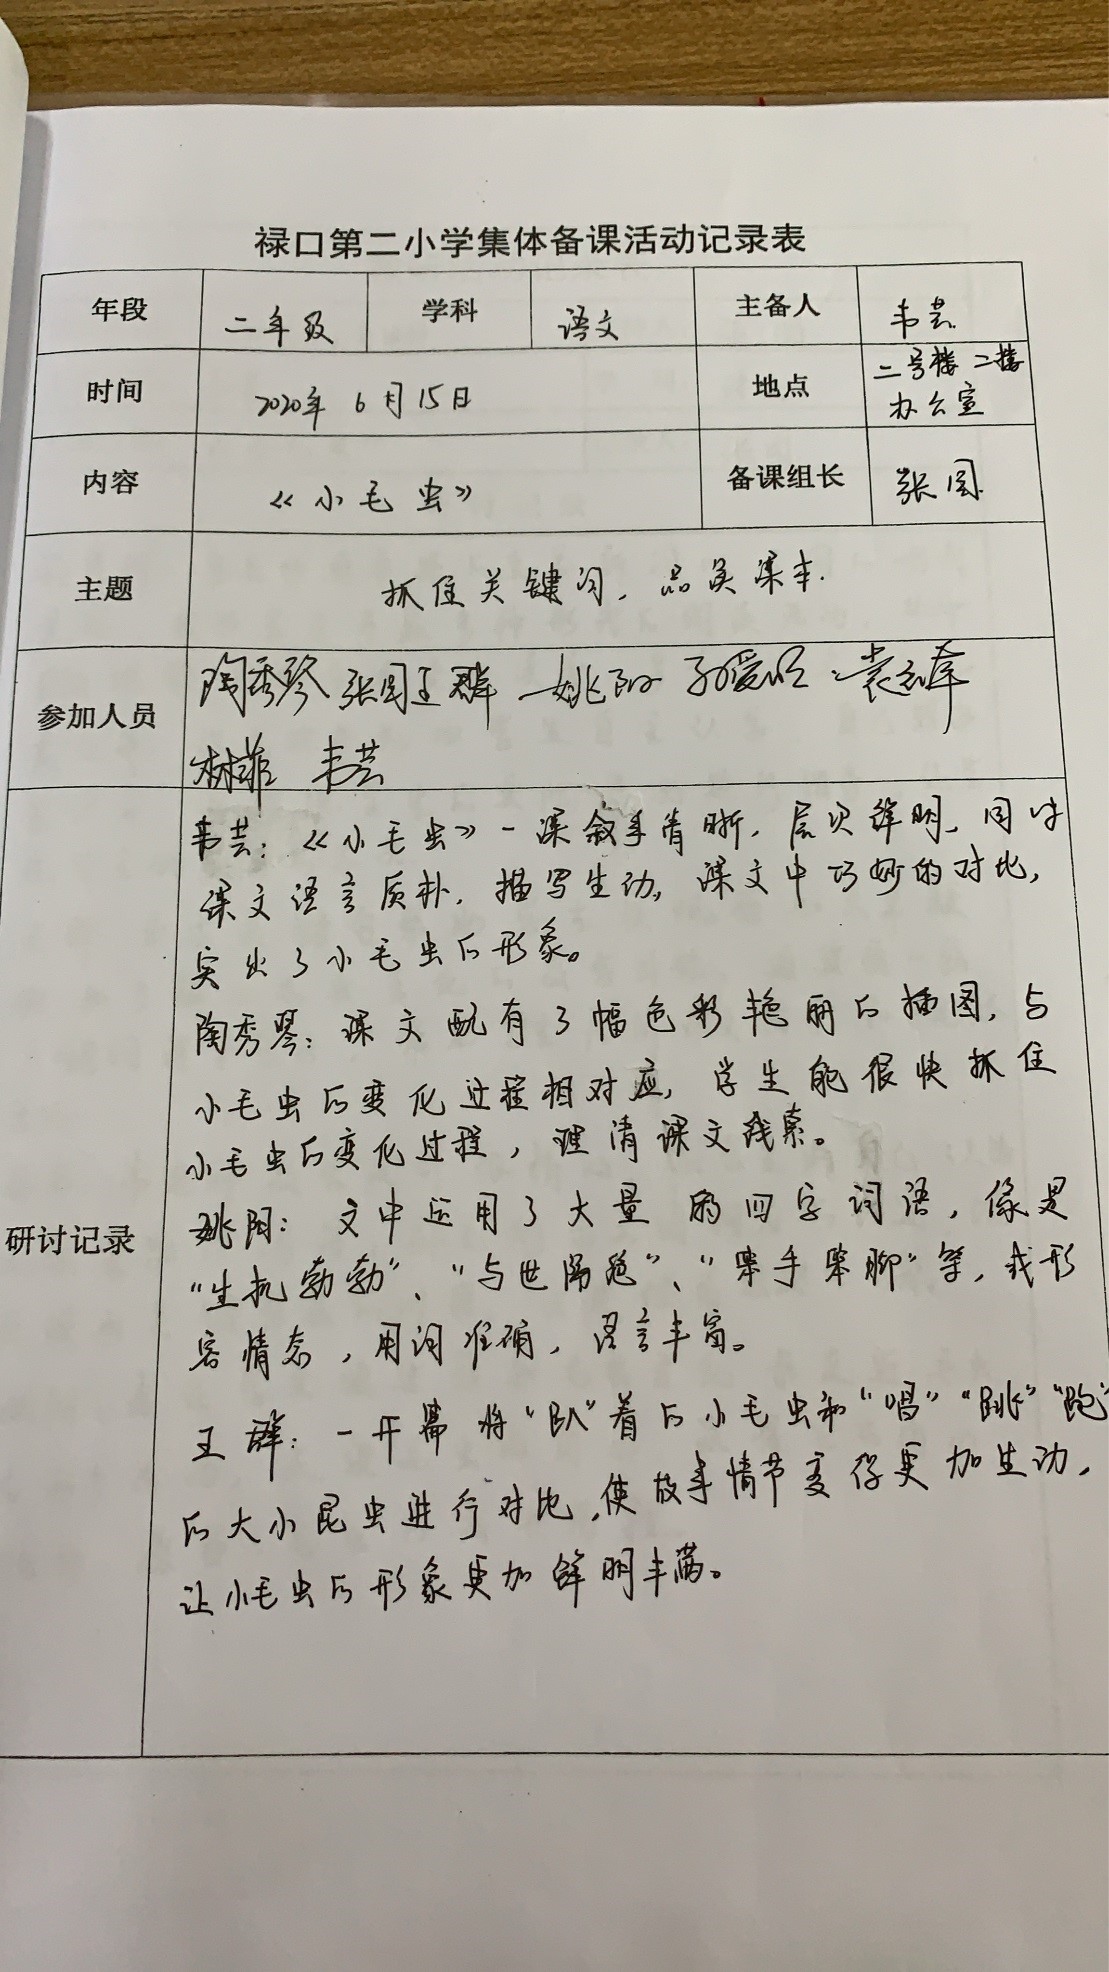 禄口第二小学集体备课活动记录表
年段 二年级 学科 语文 主备人 韦芸
时间 2020年6月15日 地点 二号楼二楼
办公室
内容 《小毛虫》 备课组长 张园
主题 抓住关键词，品英课本.
参加人员 陶秀琴 张园 王群 姚阳
林菲 韦芸
研讨记录
韦芸：《小毛虫》一课叙事清晰，层次鲜明，同时
课文语言质朴，描写生动，课文中巧妙的对比，
突出了小毛虫的形象。
陶秀琴：课文配有3幅色彩艳丽的插图，与
小毛虫的变化过程相对应，学生能很快抓住
小毛虫的变化过程，理清课文线索。
姚阳：文中运用了大量的四字词语，像是
“生机勃勃”、“与世隔绝”、“笨手笨脚”等，或形
容情态，用词准确，语言丰富。
王群：一开幕将“趴”着的小毛虫和“唱”“跳”“跑”
的大小昆虫进行对比，使故事情节变得更加生动，
让小毛虫的形象更加鲜明丰满。